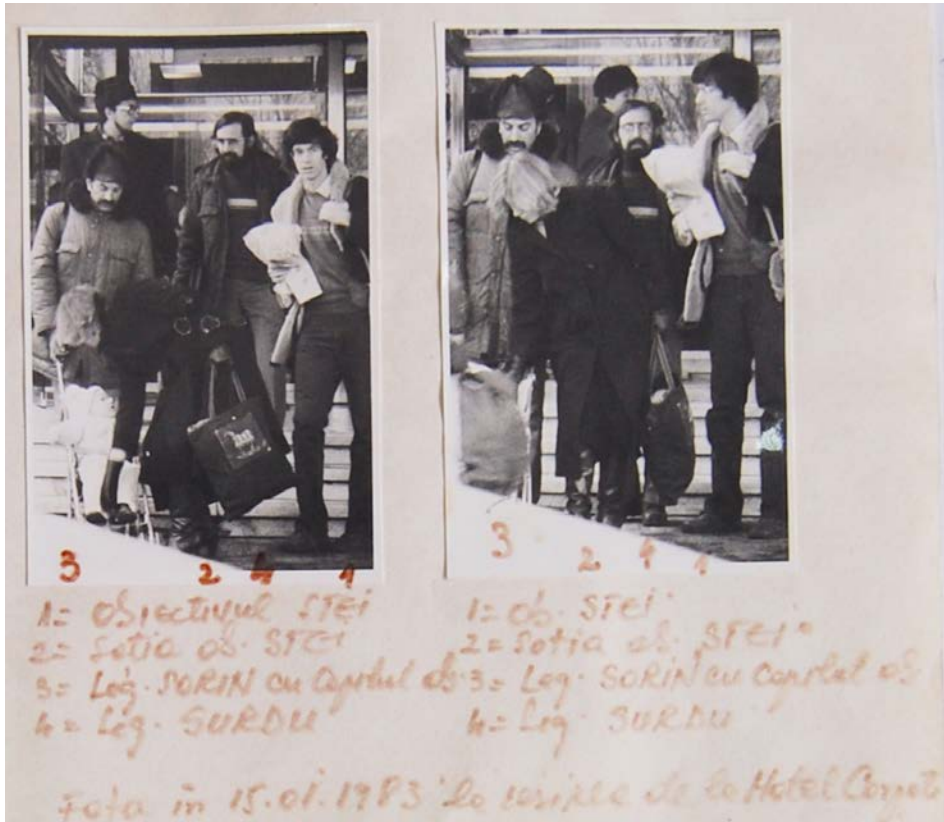 3 2 4 1
3 2 4 1
1= Obiectivul STEI
2= Soția ob. STEI
3= Leg. SORIN cu copilul ob.
4= Leg. SURDU
1= Ob. STEI
2= Soția ob. STEI
3= Leg. SORIN cu copilul ob
4= Leg. SURDU
Foto în 15.01.1983 la ieșirea de la Hotel